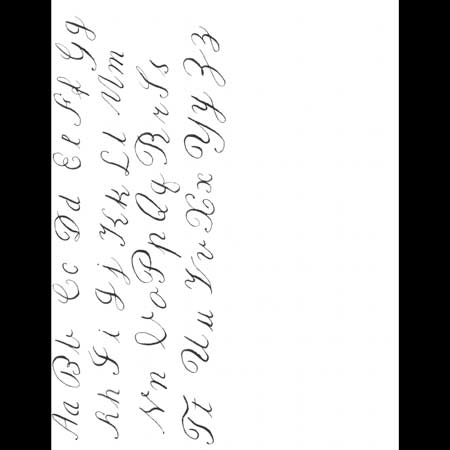 Aa Bb Cc Dd Ee Ff Gg
Hh Ii Jj Kk Ll Mm
Nn Oo Pp Qq Rr Ss
Tt Uu Vv Xx Yy Zz